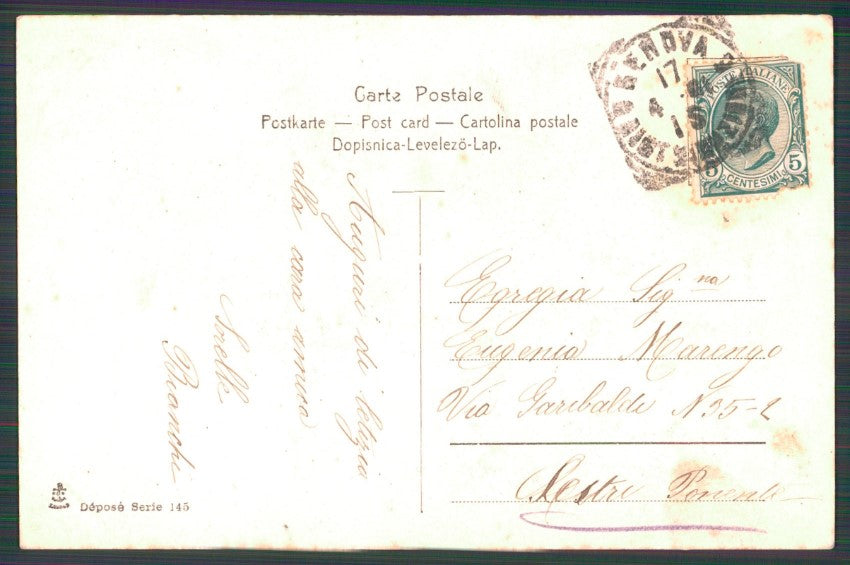 Carte Postale
Postkarte — Post card — Cartolina postale
Dopisnica-Levelező-Lap.
GENOVA
17
4
10
POSTE ITALIANE
5 5
CENTESIMI
Auguri di letizia
alla cara amica
Sorelle
Bianchi
Egregia Signa
Eugenia Marengo
Via Garibaldi N 35-2
Sestri Ponente
Déposé Serie 145